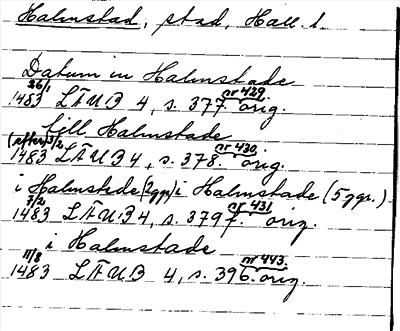 Halmstad, stad, Hall. l.
Datum in Halmstade
26/1 1483 LÄUB 4, s. 377. nr 429. orig.
till Halmstade
(efter) 3/2 1483 LÄUB 4, s. 378. nr 430. orig.
i Halmstede (2 ggr) i Halmstade (5 ggr.)
7/2 1483 LÄUB 4, s. 379 f. nr 431. orig.
i Halmstade
11/8 1483 LÄUB 4, s. 396. nr 443. orig.